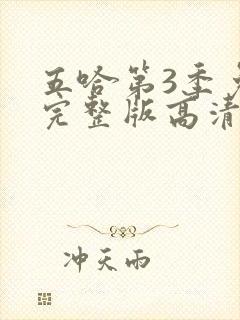 五哈第3季
完整版高清
冲天雨